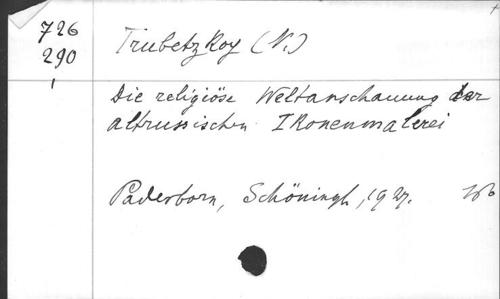 726
290
Trubetzkoy (N.)
Die religiöse Weltanschauung der
altrussischen Ikonenmalerei
Paderborn, Schöningh, 1927.